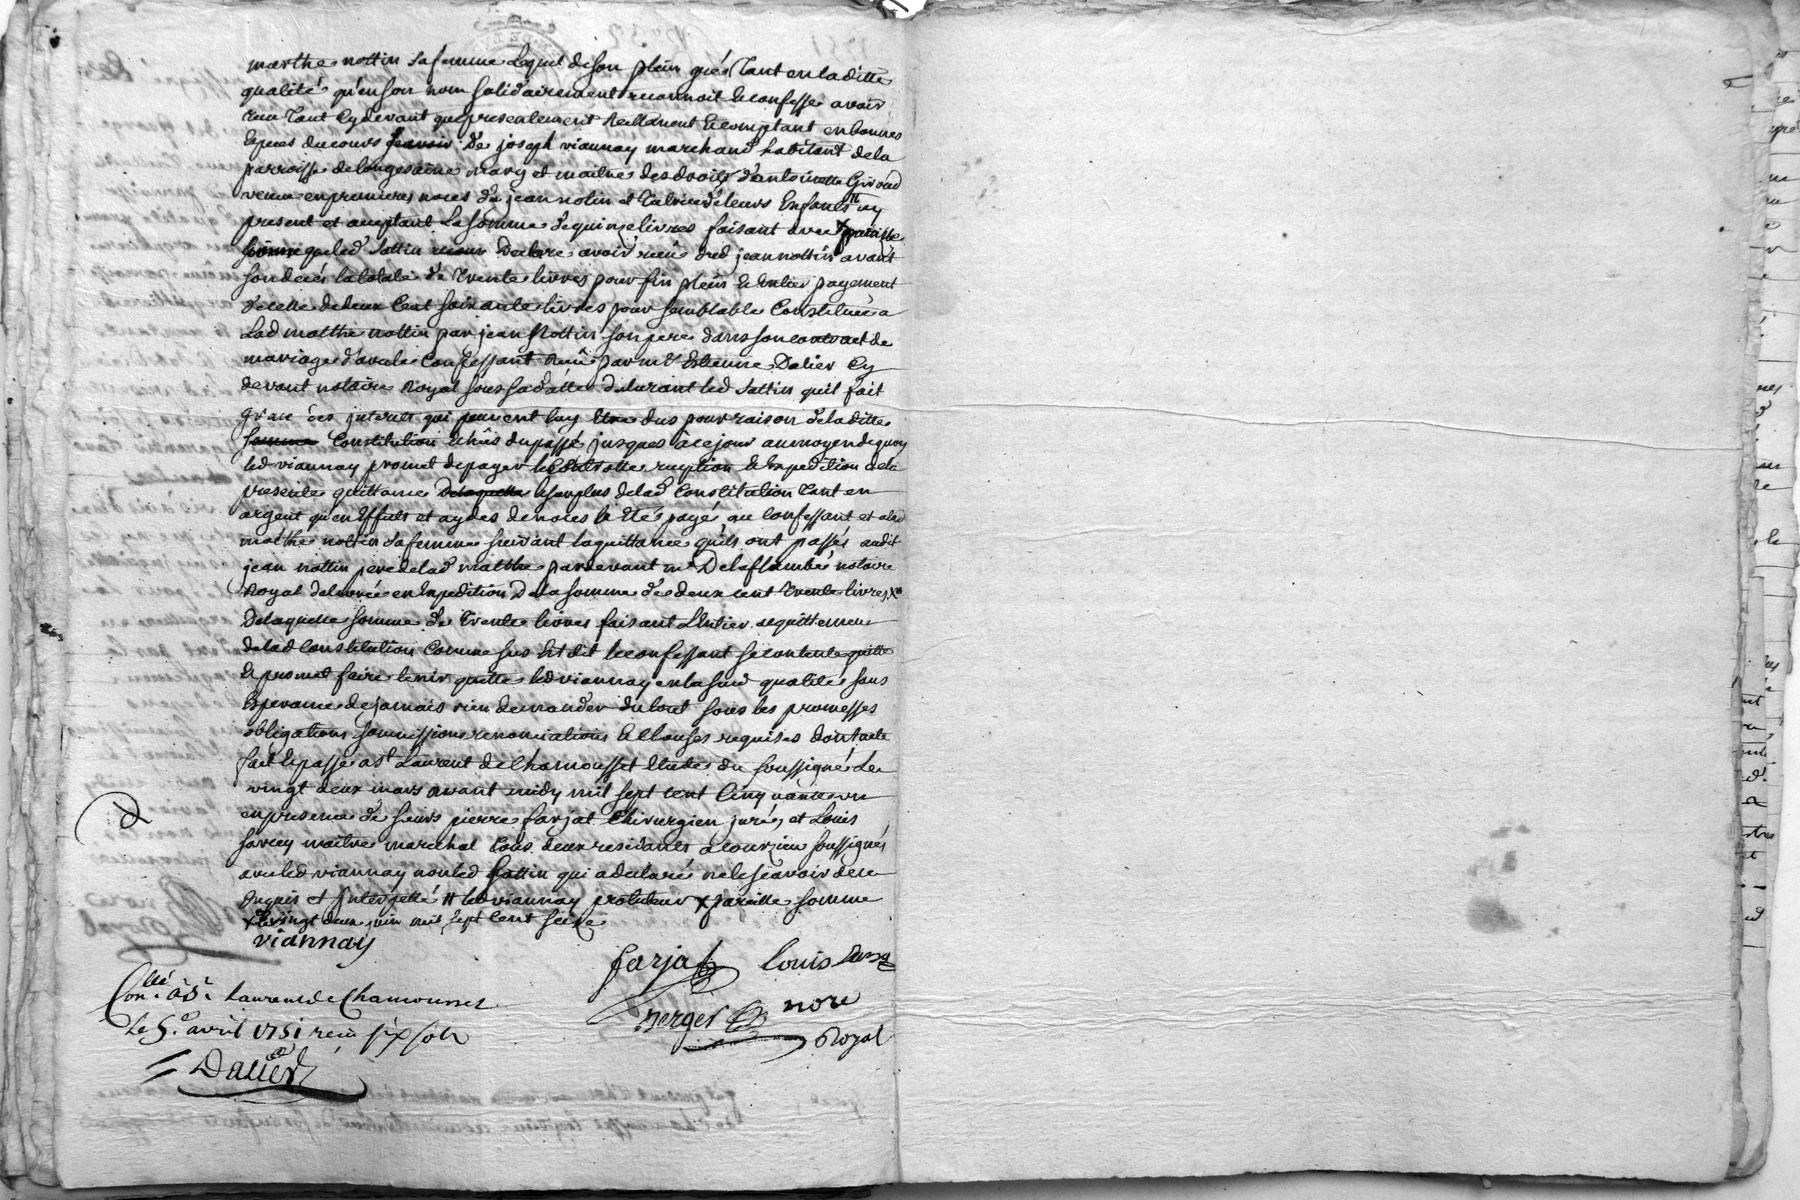 marthe nottin sa femme lequel de son plein gré tant en laditte
qualité qu'en son nom solidairement reconnoit & confesse avoir
receu tant cy devant que presentement reellement & comptant en bonnes
especes du cours de joseph viannay marchand habitant de la
parroisse de longessaine mary et maitre des droits d'antoinette Giroud
veuve en premieres noces de jean notin et tutrice de leurs enfants # icy
present et acceptant la somme de quinze livres faisant avec
que led Sattin declare avoir receu dud jean nottin avant
son deces la totale de trente livres pour fin plein & entier payement
d'icelle de deux cent soixante livres pour semblable constituée a
lad matthe nottin par jean Nottin son pere dans son contract de
mariage d'avec le confessant receu par me Estienne Dalier cy
devant notaire Royal sous sa datte declarant led Sattin qu'il fait
grace des interets qui peuvent luy etre dus pour raison de laditte
constitution echus du passé jusques à ce jour au moyen de quoy
led viannay promet de payer reception & expedition de la
presente quittance le surplus de lad constitution tant en
argent qu'en effects et aydes de noces a eté payé au confessant et a lad
matthe nottin sa femme suivant la quittance qu'ils ont passés audit
jean nottin pere de lad matthe pardevant me Delaflambée notaire
Royal delivrée en expedition de la somme de deux cent trente livres x
De laquelle somme de trente livres faisant l'entier acquittement
de lad constitution comme sus est dit le confessant se contente quitte
& promet faire tenir quitte led viannay en lad qualité sans
esperance de jamais rien demander du tout sous les promesses
obligations soumissions renonciations & clauses requises dont acte
fait & passé a St Laurent de Chamousset etude du soussigné le
vingt deux mars avant midy mil sept cent cinquante un
en presence de sieurs pierre farjat chirurgien juré, et Louis
maitre marechal tous deux residants a courzieu soussignés
avec led viannay non led Sattin qui a declaré ne le scavoir de ce
enquis et interpellé # led viannay protuteur x pareille somme
x le vingt deux juin mil sept cent seize
viannay
farjat louis
Berger nore
Royal
Conllé à St Laurent de Chamousset
le 5e avril 1751 receu six sols
Dalier